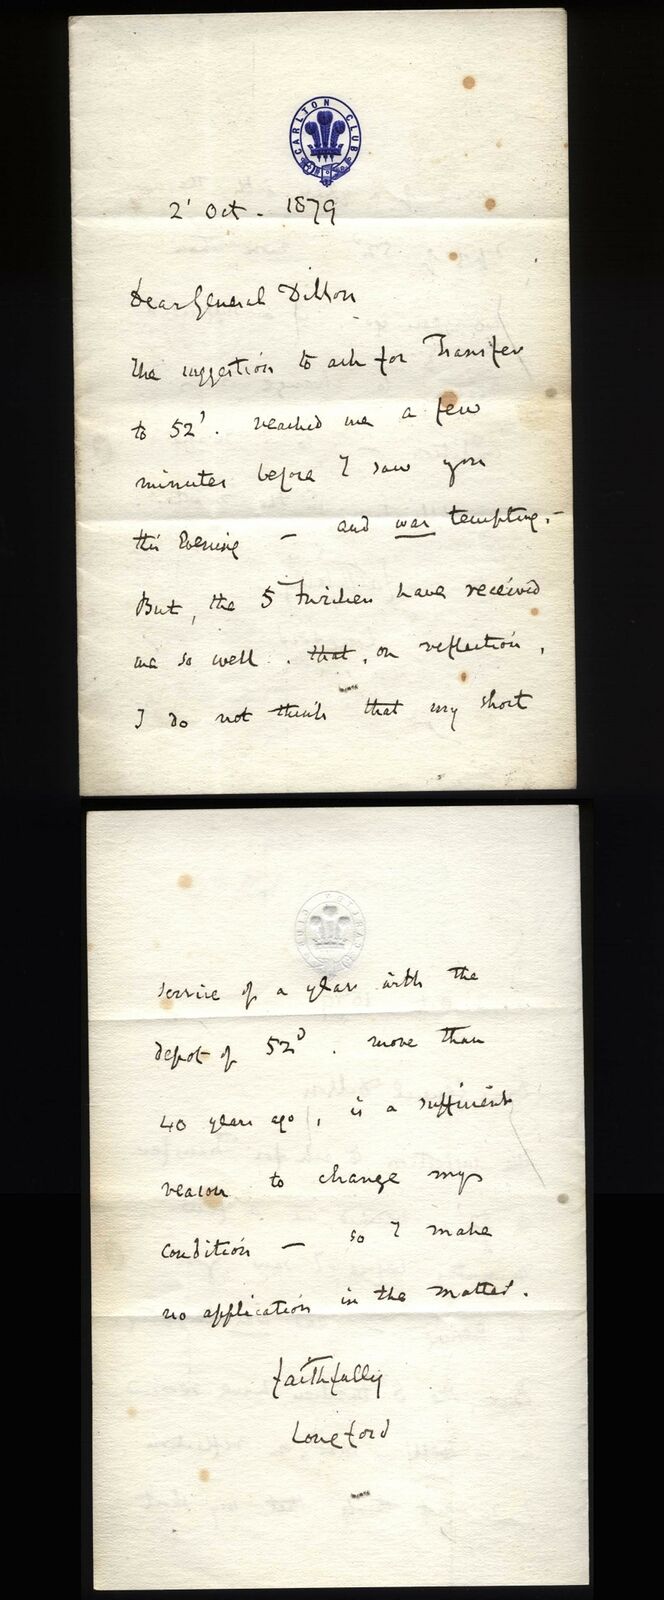 CARLTON CLUB
2' Oct. 1879
Dear General Dillon
The suggestion to ask for Transfer
to 52'. reached me a few
minutes before I saw you
this Evening – and was tempting.–
But, the 5 Fusiliers have received
me so well . that, on reflection,
I do not think that my short
CARLTON CLUB
service of a year with the
depot of 52d . more than
40 years ago, is a sufficient
reason to change my
condition – so I make
no application in the matter.
faithfully
Longford